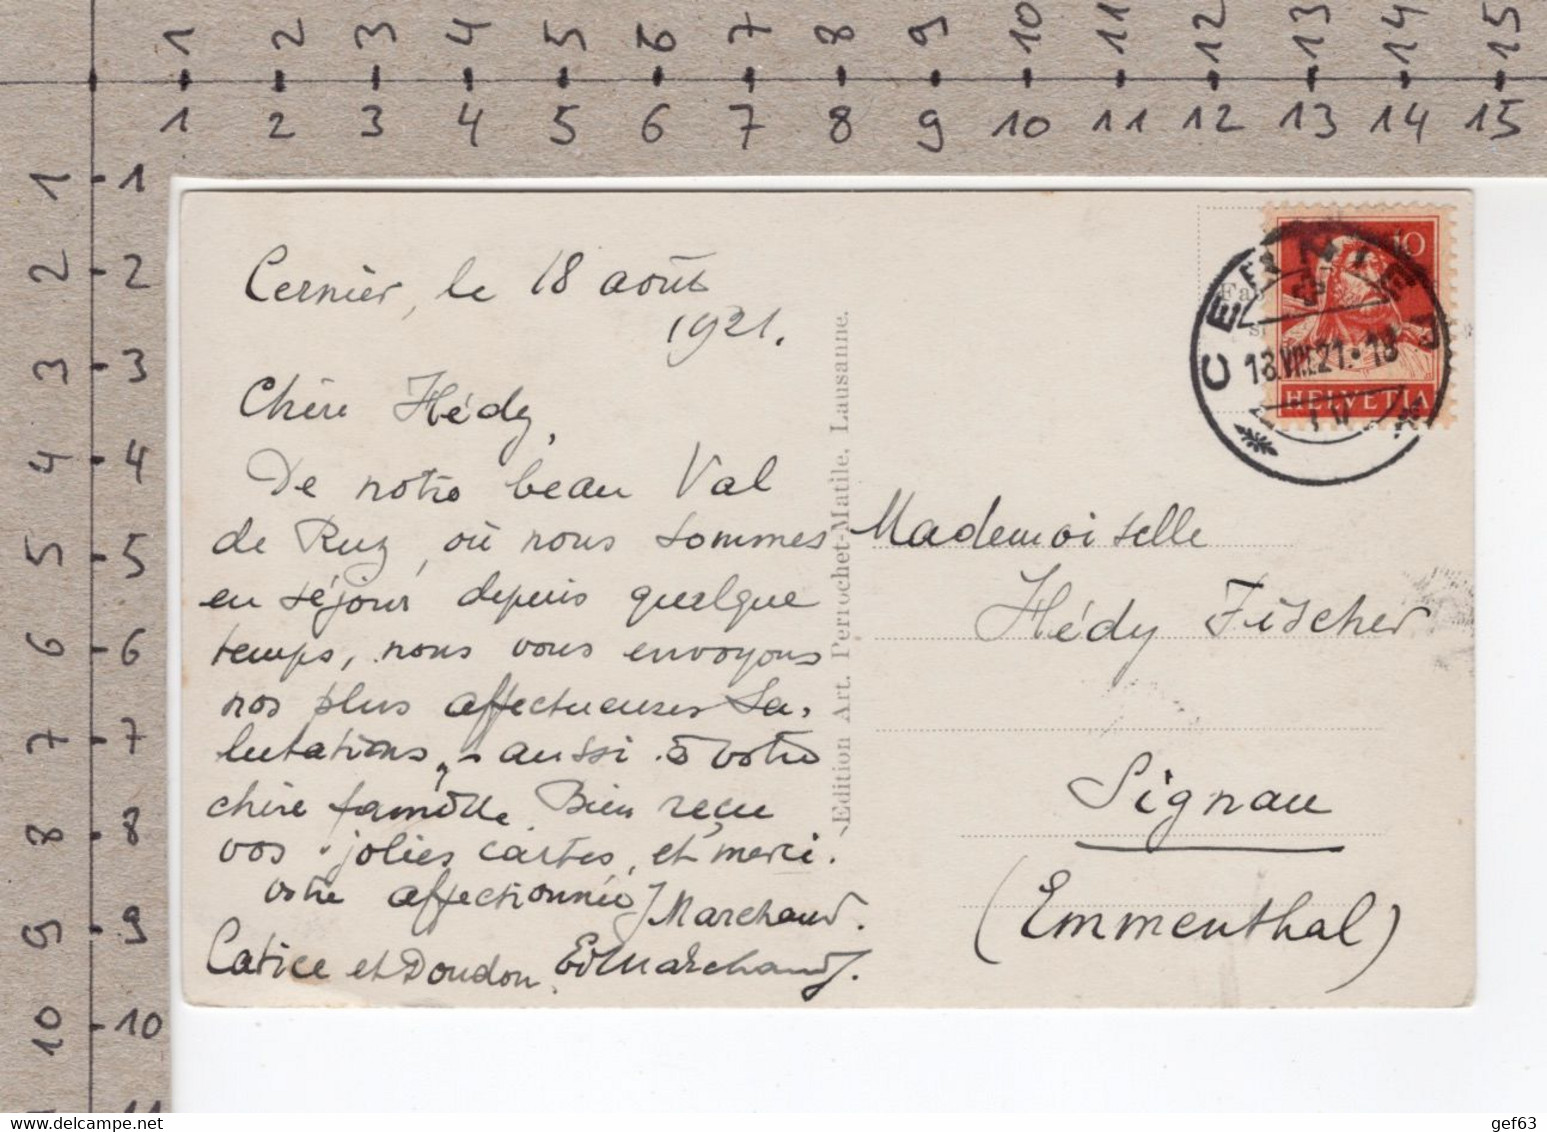 1 2 3 4 5 6 7 8 9 10 11 12 13 14 15
1 2 3 4 5 6 7 8 9 10 11 12 13 14 15
1 1
2 2
3 3
4 4
5 5
6 6
7 7
8 8
9 9
10 10
11
Cernier, le 18 août
1921.
Chère Hédy,
De notre beau Val
de Ruz, où nous sommes
en séjour depuis quelque
temps, nous vous envoyons
nos plus affectueuses sa-
lutations, aussi à votre
chère famille. Bien reçu
vos jolies cartes, et merci.
Votre affectionnée J Marchand.
Catice et Doudou. Ed Marchand.
Edition Art. Perrochet-Matile, Lausanne.
10
HELVETIA
CERNIER
18.VIII.21.18
Mademoiselle
Hédy Fischer
Signau
(Emmenthal)
gef63